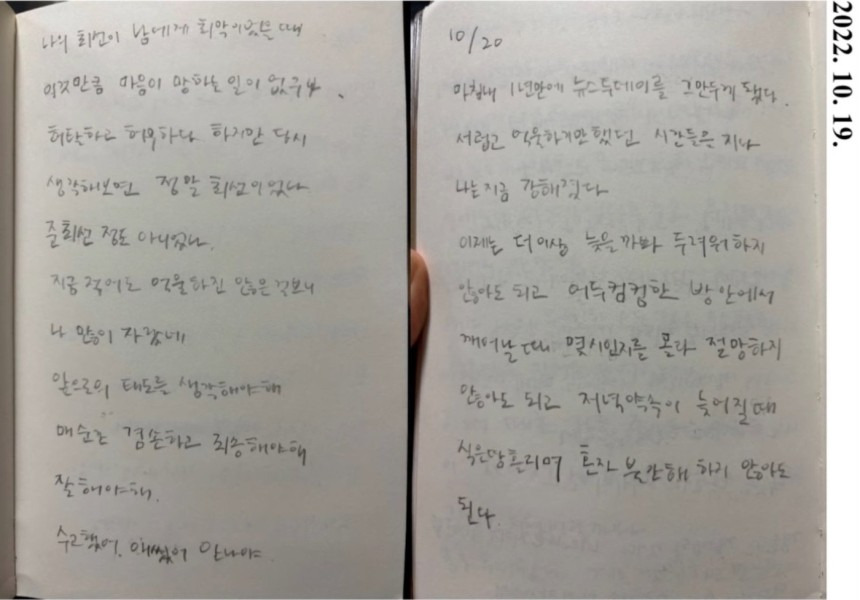 나의 최선이 남에게 최악이었을 때
이것만큼 마음이 망하는 일이 없구나.
허탈하고 허무하다. 하지만 다시
생각해보면 정말 최선이었나
준최선 정도 아니었나.
지금 적어도 억울하진 않은 걸보니
나 많이 자랐네
앞으로의 태도를 생각해야해
매순간 겸손하고 죄송해야해
잘해야해.
수고했어. 애썼어 안나야.
10/20
마침내 1년만에 뉴스투데이를 그만두게 됐다.
서럽고 억울하기만했던 시간들은 지나
나는 지금 강해졌다
이제는 더이상 늦을까봐 두려워하지
않아도 되고 어두컴컴한 방안에서
깨어날 때 몇시인지를 몰라 절망하지
않아도 되고 저녁약속이 늦어질때
식은땀흘리며 혼자 불안해 하지 않아도
된다.
2022. 10. 19.